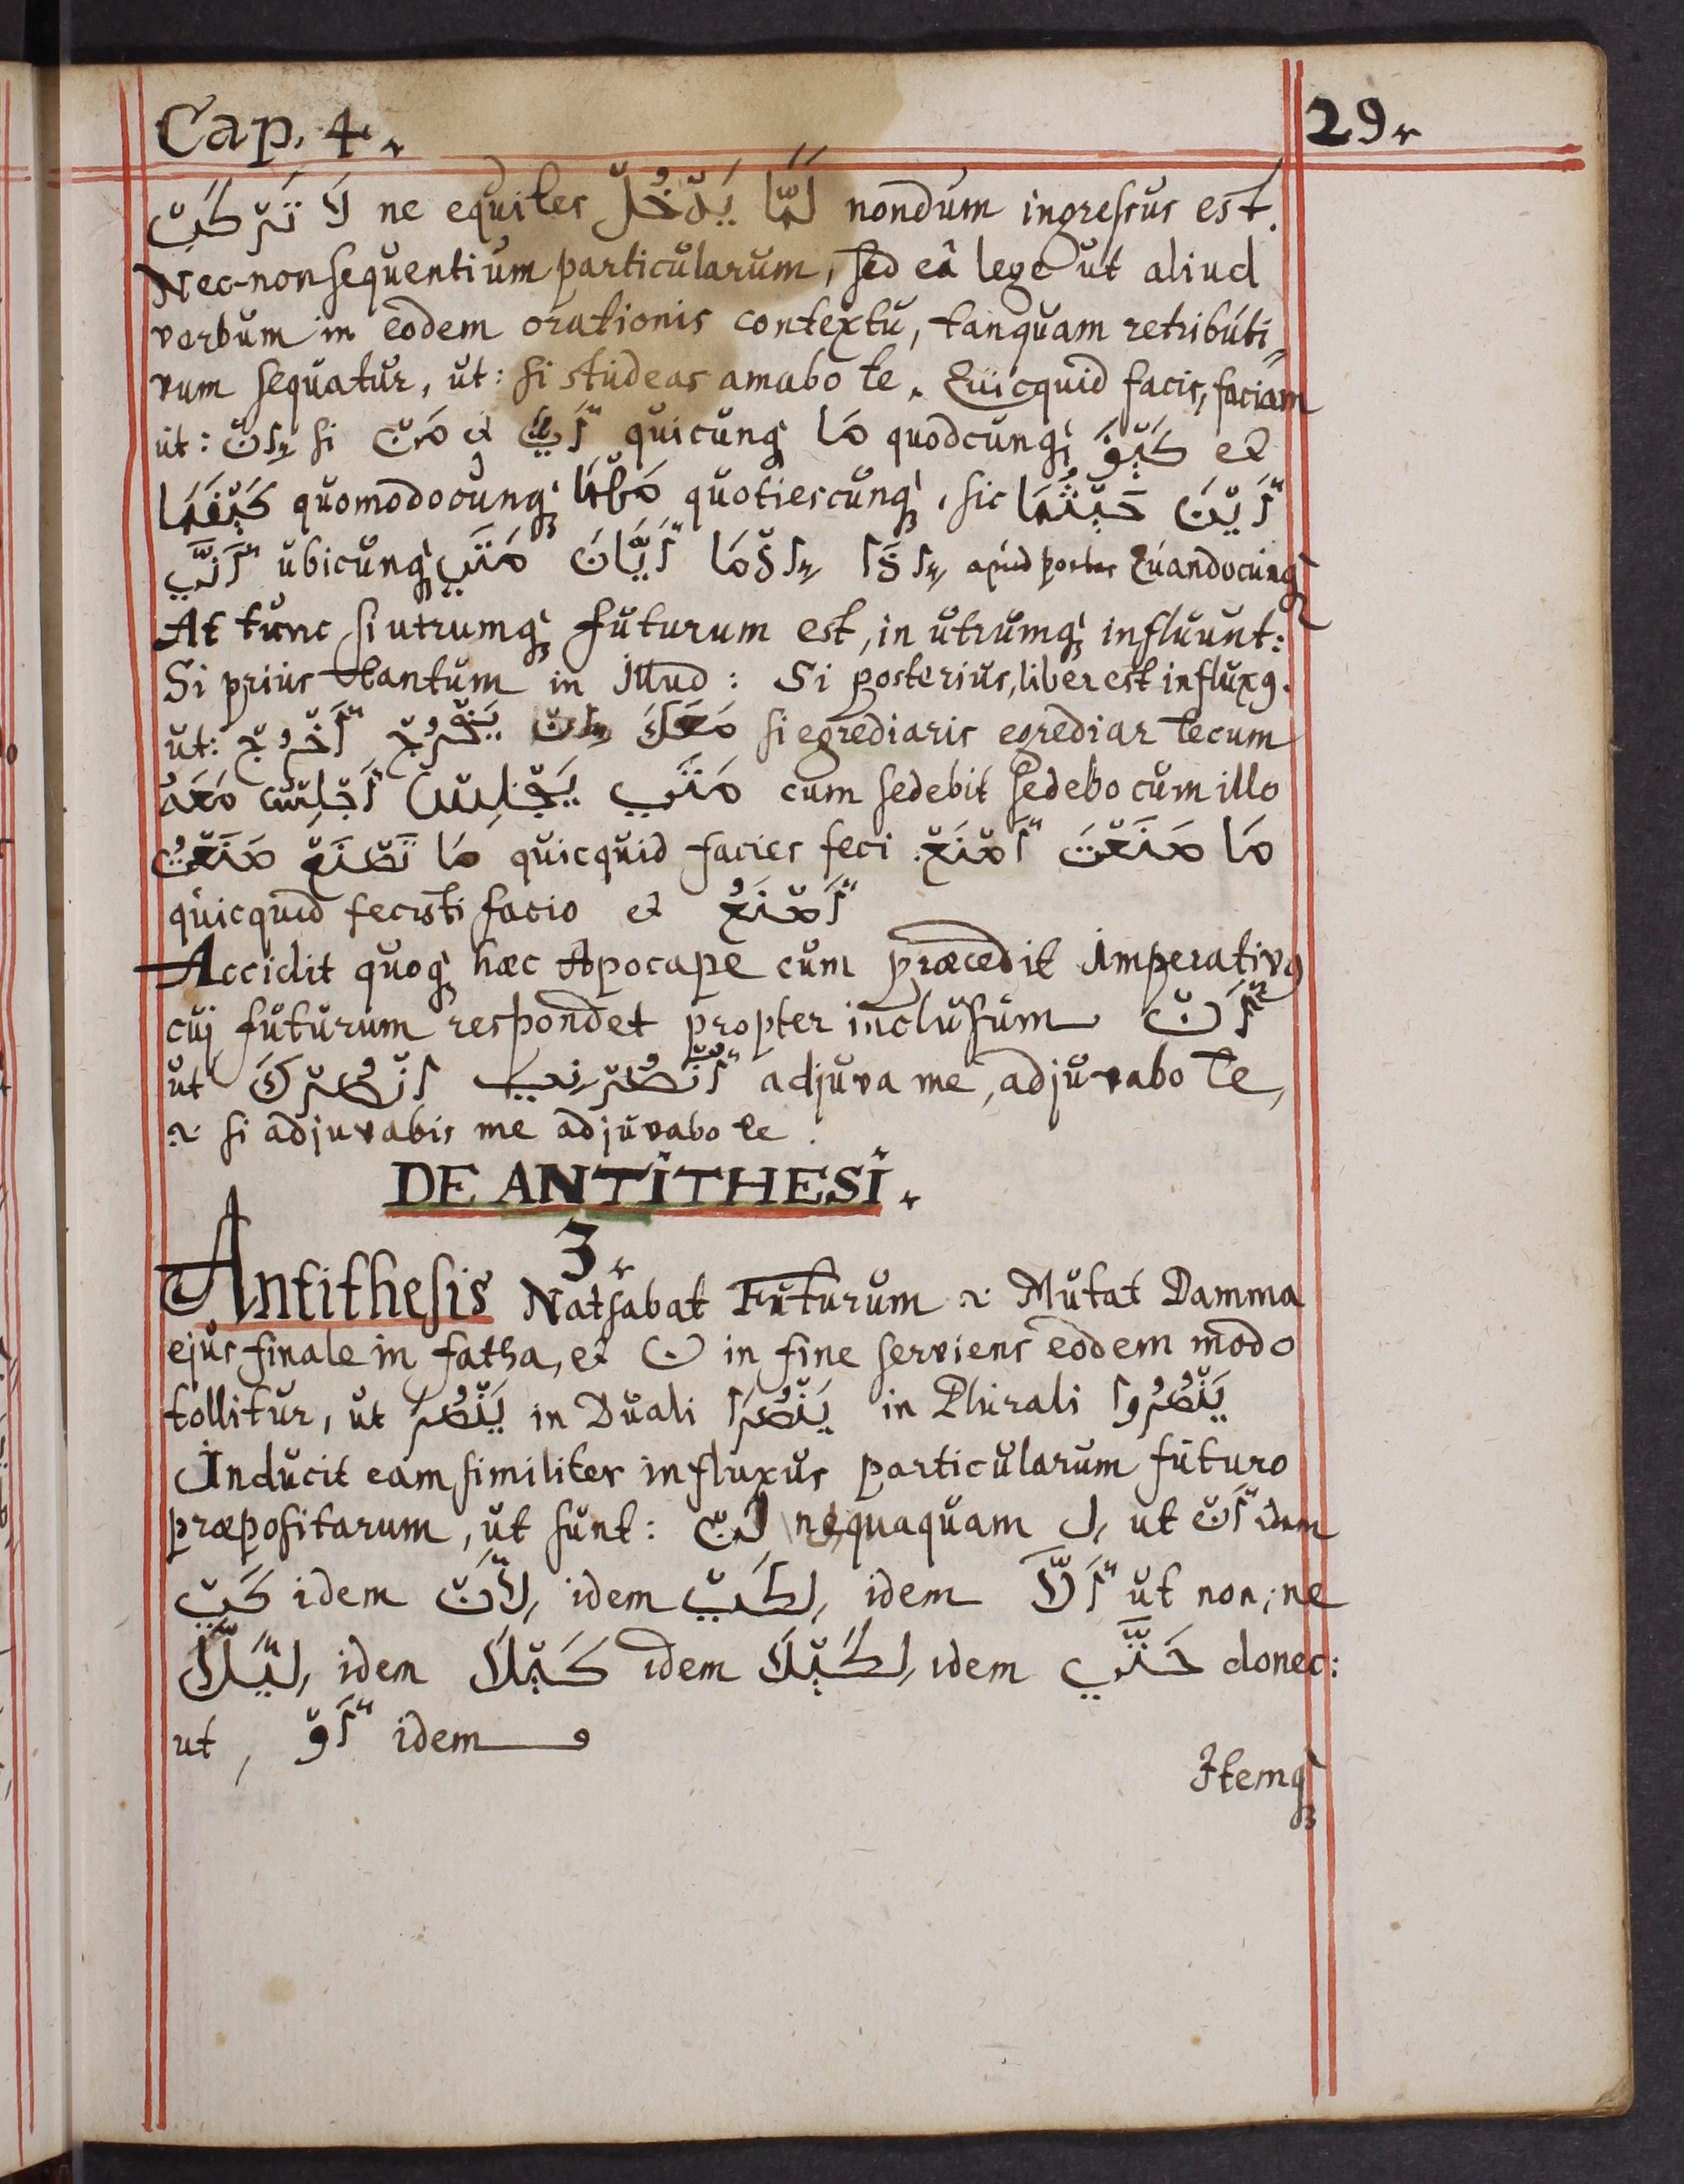 Cap. 4.
29.
لَا تَرْكَبْ ne equites لَمَّا يَدْخُلْ nondum ingressus est.
Nec-non sequentium particularum, sed eâ lege ut aliud
verbum in eodem orationis contextu, tanquam retributi=
vum sequatur, ut: si studeas amabo te. Quicquid facis, faciam
ut: إِنْ si مَنْ et أَيّ quicunq; مَا quodcunq; كَيْفَ et
كَيْفَمَا quomodocunq; مَهْمَا quotiescunq;, sic أَيْنَ حَيْثُمَا
أَنَّى ubicunq; مَتَى أَيَّانَ إِذْمَا إِذَا apud poetas Quandocunq;
At tunc si utrumq; futurum est, in utrumq; influunt:
Si prius tantum in illud: Si posterius, liber est influxꝰ.
ut: أَخْرُجْ يَخْرُجْ إِنْ مَعَكَ si egrediaris egrediar tecum
مَتَى يَجْلِسْ أَجْلِسْ مَعَهُ cum sedebit sedebo cum illo
مَا تَصْنَعْ صَنَعْتُ quicquid facies feci أَصْنَعْ مَا صَنَعْتَ
quicquid fecisti facio et أَصْنَعُ
Accidit quoq; hæc Apocape cum præcedit imperativꝰ
cuj futurum respondet propter inclusum أَنْ
ut أُنْصُرْنِي أَنْصُرْكَ adjuva me, adjuvabo te,
.i. si adjuvabis me adjuvabo te.
DE ANTITHESI.
3.
Antithesis Natsabat Futurum .i. Mutat Damma
ejus finale in fatha, et ن in fine serviens eodem modo
tollitur, ut يَنْصُرَ in Duali يَنْصُرَا in Plurali يَنْصُرُوا
Inducit eam similiter influxus particularum futuro
præpositarum, ut sunt: لَنْ nequaquam لِ ut أَنْ idem
كَيْ idem لِأَنْ idem لِكَيْ idem أَلَّا ut non, ne
لِئَلَّا idem كَيْلَا idem لِكَيْلَا idem حَتَّى donec:
ut, أَوْ idem و
Itemq;